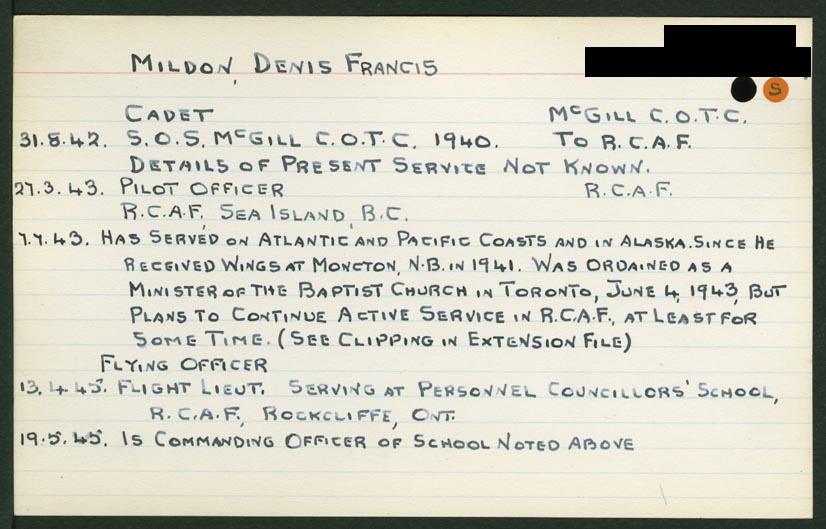 MILDON, DENIS FRANCIS
S
CADET McGILL C.O.T.C.
31.8.42. S.O.S. McGILL C.O.T.C. 1940. TO R.C.A.F.
DETAILS OF PRESENT SERVICE NOT KNOWN.
27.3.43. PILOT OFFICER R.C.A.F.
R.C.A.F. SEA ISLAND, B.C.
7.7.43. HAS SERVED ON ATLANTIC AND PACIFIC COASTS AND IN ALASKA. SINCE HE
RECEIVED WINGS AT MONCTON, N.B. IN 1941. WAS ORDAINED AS A
MINISTER OF THE BAPTIST CHURCH IN TORONTO, JUNE 4, 1943, BUT
PLANS TO CONTINUE ACTIVE SERVICE IN R.C.A.F., AT LEAST FOR
SOME TIME. (SEE CLIPPING IN EXTENSION FILE)
FLYING OFFICER
13.4.45. FLIGHT LIEUT. SERVING AT PERSONNEL COUNCILLORS' SCHOOL,
R.C.A.F., ROCKCLIFFE, ONT.
19.5.45. IS COMMANDING OFFICER OF SCHOOL NOTED ABOVE